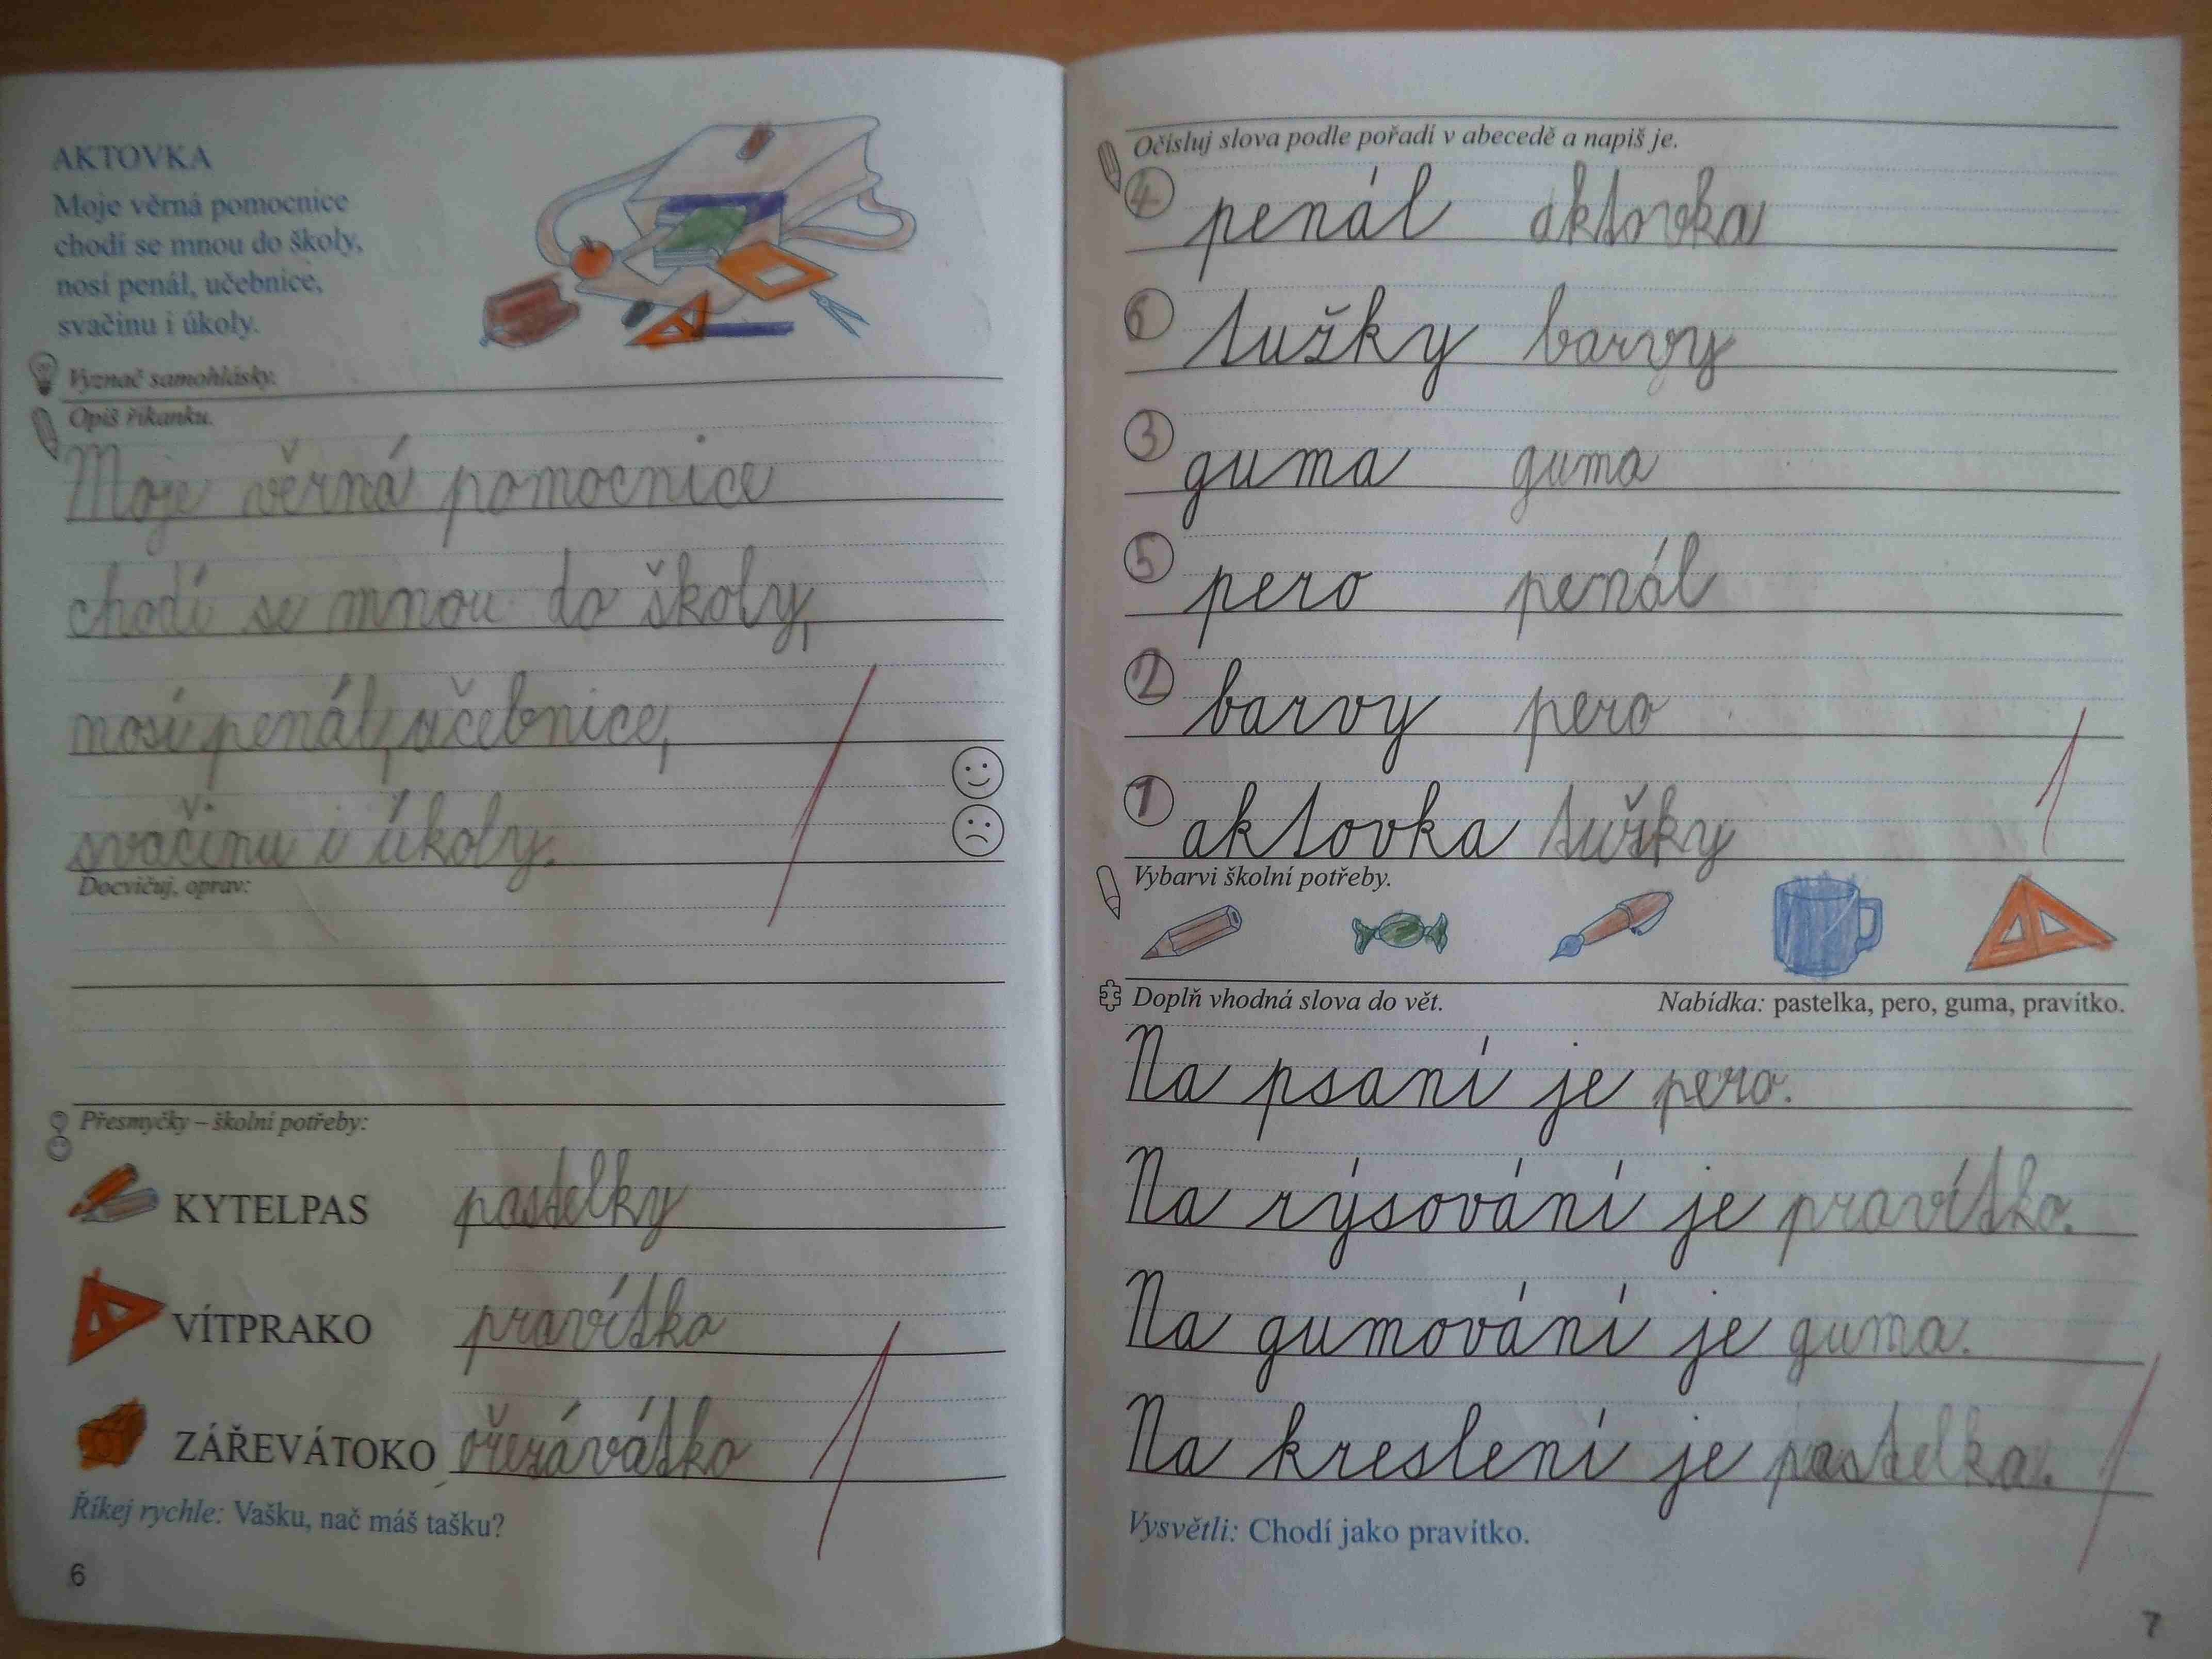 AKTOVKA
Moje věrná pomocnice
chodí se mnou do školy,
nosí penál, učebnice,
svačinu i úkoly.
Vyznač samohlásky.
Opiš říkanku.
Moje věrná pomocnice
chodí se mnou do školy,
nosí penál, učebnice,
svačinu i úkoly.
Docvičuj, oprav:
1
Přesmyčky – školní potřeby:
KYTELPAS pastelky
VÍTPRAKO pravítko
ZÁŘEVÁTOKO ořezávátko
1
Říkej rychle: Vašku, nač máš tašku?
6
Očísluj slova podle pořadí v abecedě a napiš je.
4 penál aktovka
6 tužky barvy
3 guma guma
5 pero penál
2 barvy pero
1 aktovka tužky
1
Vybarvi školní potřeby.
Doplň vhodná slova do vět. Nabídka: pastelka, pero, guma, pravítko.
Na psaní je pero.
Na rýsování je pravítko.
Na gumování je guma.
Na kreslení je pastelka.
1
Vysvětli: Chodí jako pravítko.
7